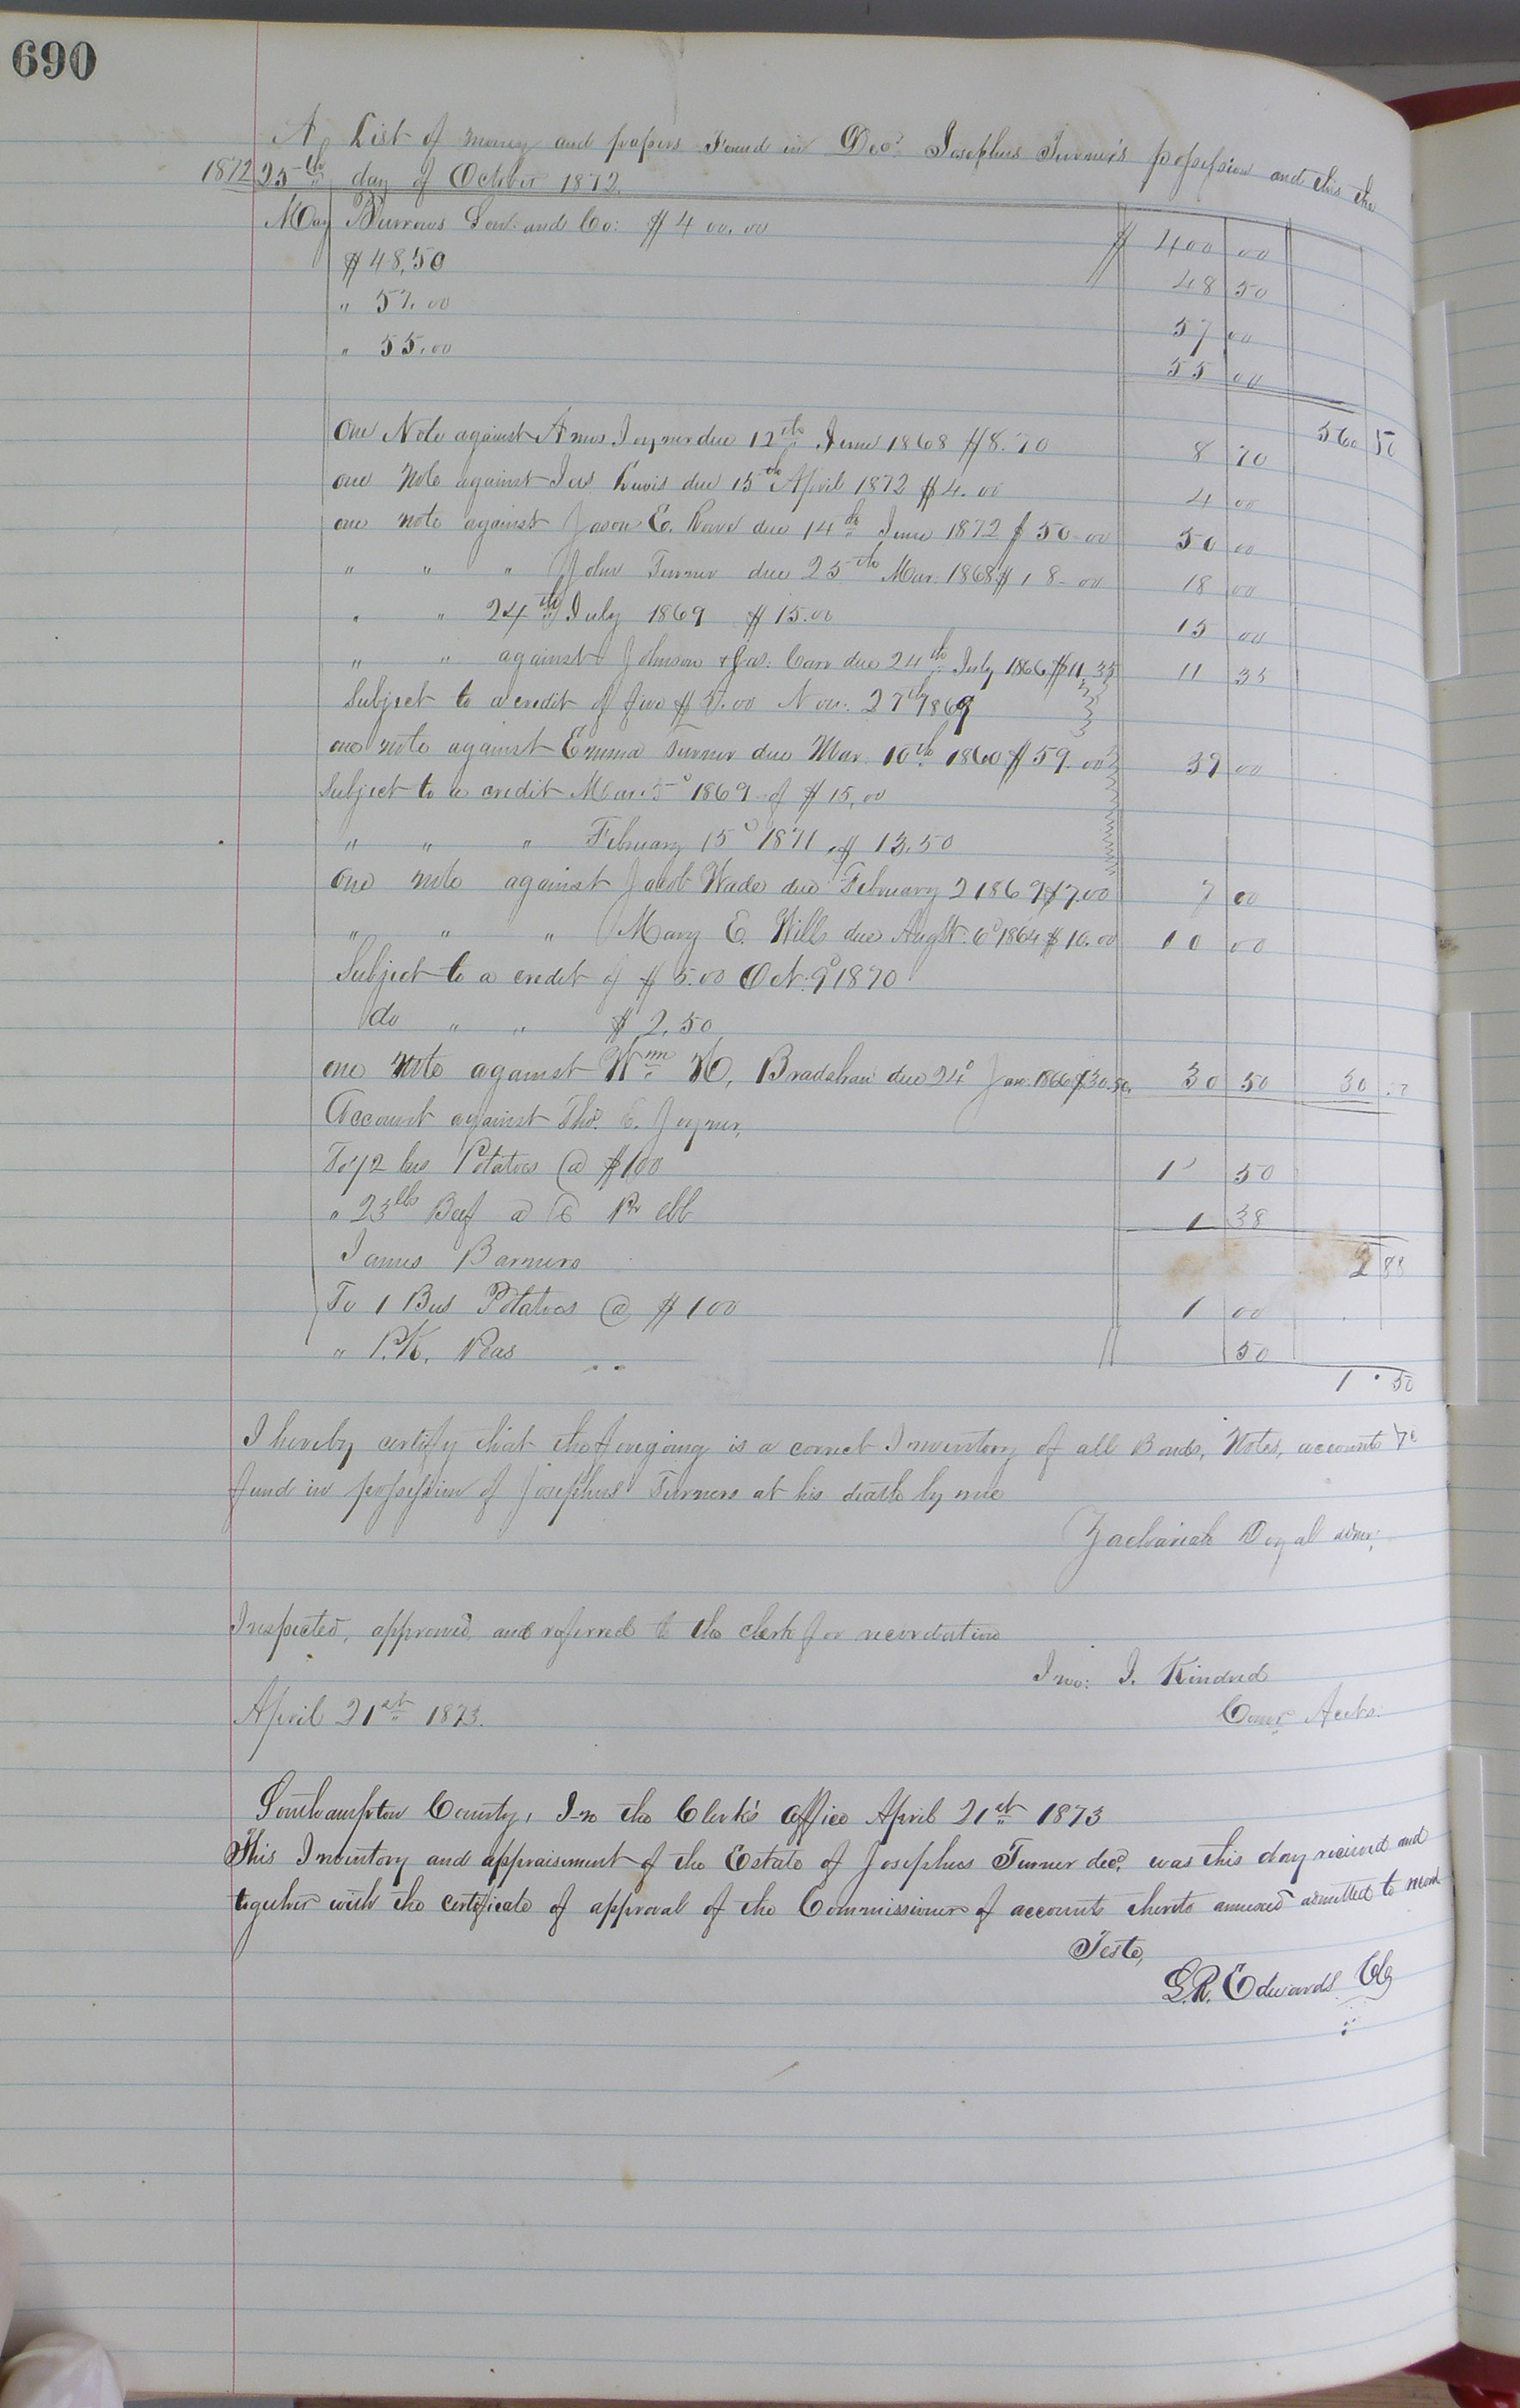 690
A List of money and papers Found in Dec'd Josephus Turner's possession and this the
1872 25th day of October 1872.
May Burrows Low and Co: $400.00 $ 400 00
$48,50 48 50
" 57.00 57 00
" 55.00 55 00
560 50
One Note against Amos Joyner due 12th June 1868 $8.70 8 70
one Note against Jas Lewis due 15th April 1872 $4.00 4 00
one note against Jason E. due 14th June 1872 $50-00 50 00
" " " John Turner due 25th Mar. 1868 $18-00 18 00
" " 24th July 1869 $15.00 15 00
" " against Johnson & Jas: Carr due 24th July 1866 $11,35 11 35
Subject to a credit of five $5.00 Nov. 27th 1869
one note against Emma Turner due Mar. 10th 1860 $59.00 59 00
Subject to a credit Mar. 5d 1869 of $15,00
" " " February 15d 1871, $13.50
One note against Jacob Wade due February 2 1869 $7.00 7 00
" " " Mary E. Wills due Augst. 6d 1864 $10.00 10 00
Subject to a credit of $5.00 Oct. 9d 1870
do " " $2,50
one Note against Wm H, Bradshaw due 24d Jan. 1866 $30.50. 30 50 30
Account against Tho's E. Joyner,
To bus Potatoes @ $100 1 50
" 23lbs Beef a Pr lb 1 38
James Barnes 2 88
To 1 Bus Potatoes @ $100 1 00
" P.K. Peas 50
1 . 50
I hereby certify that the foregoing is a correct Inventory of all Bonds, Notes, accounts &c
fund in possession of Josephus Turners at his death by me
Zachariah Doyal admr;
Inspected, approved, and referred to the clerk for recordation
Jno: J. Kindred
April 21st 1873. Comr Accts.
Southampton County, In the Clerk's Office April 21st 1873
This Inventory and appraisement of the Estate of Josephus Turner dec'd, was this day received and
together with the certificate of approval of the Commissioner of accounts thereto annexed admitted to record
Teste,
L.R. Edwards Clk